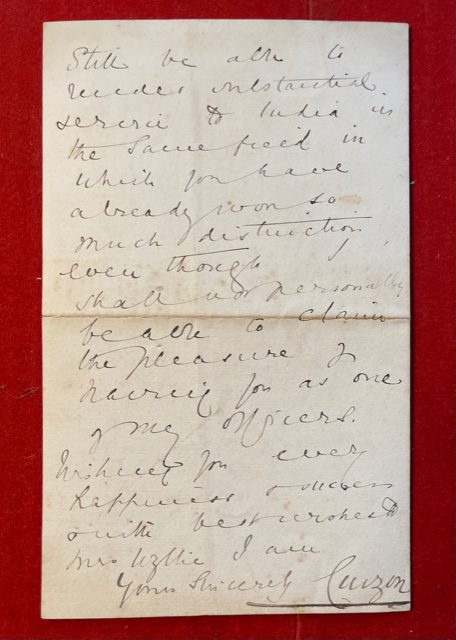 Still be able to
render substantial
service to India in
the same field in
which you have
already won so
much distinction,
even though I
shall not personally
be able to claim
the pleasure of
having you as one
of my officers.
Wishing you every
happiness & success
& with best wishes to
Mrs Wyllie I am
Yours Sincerely Curzon